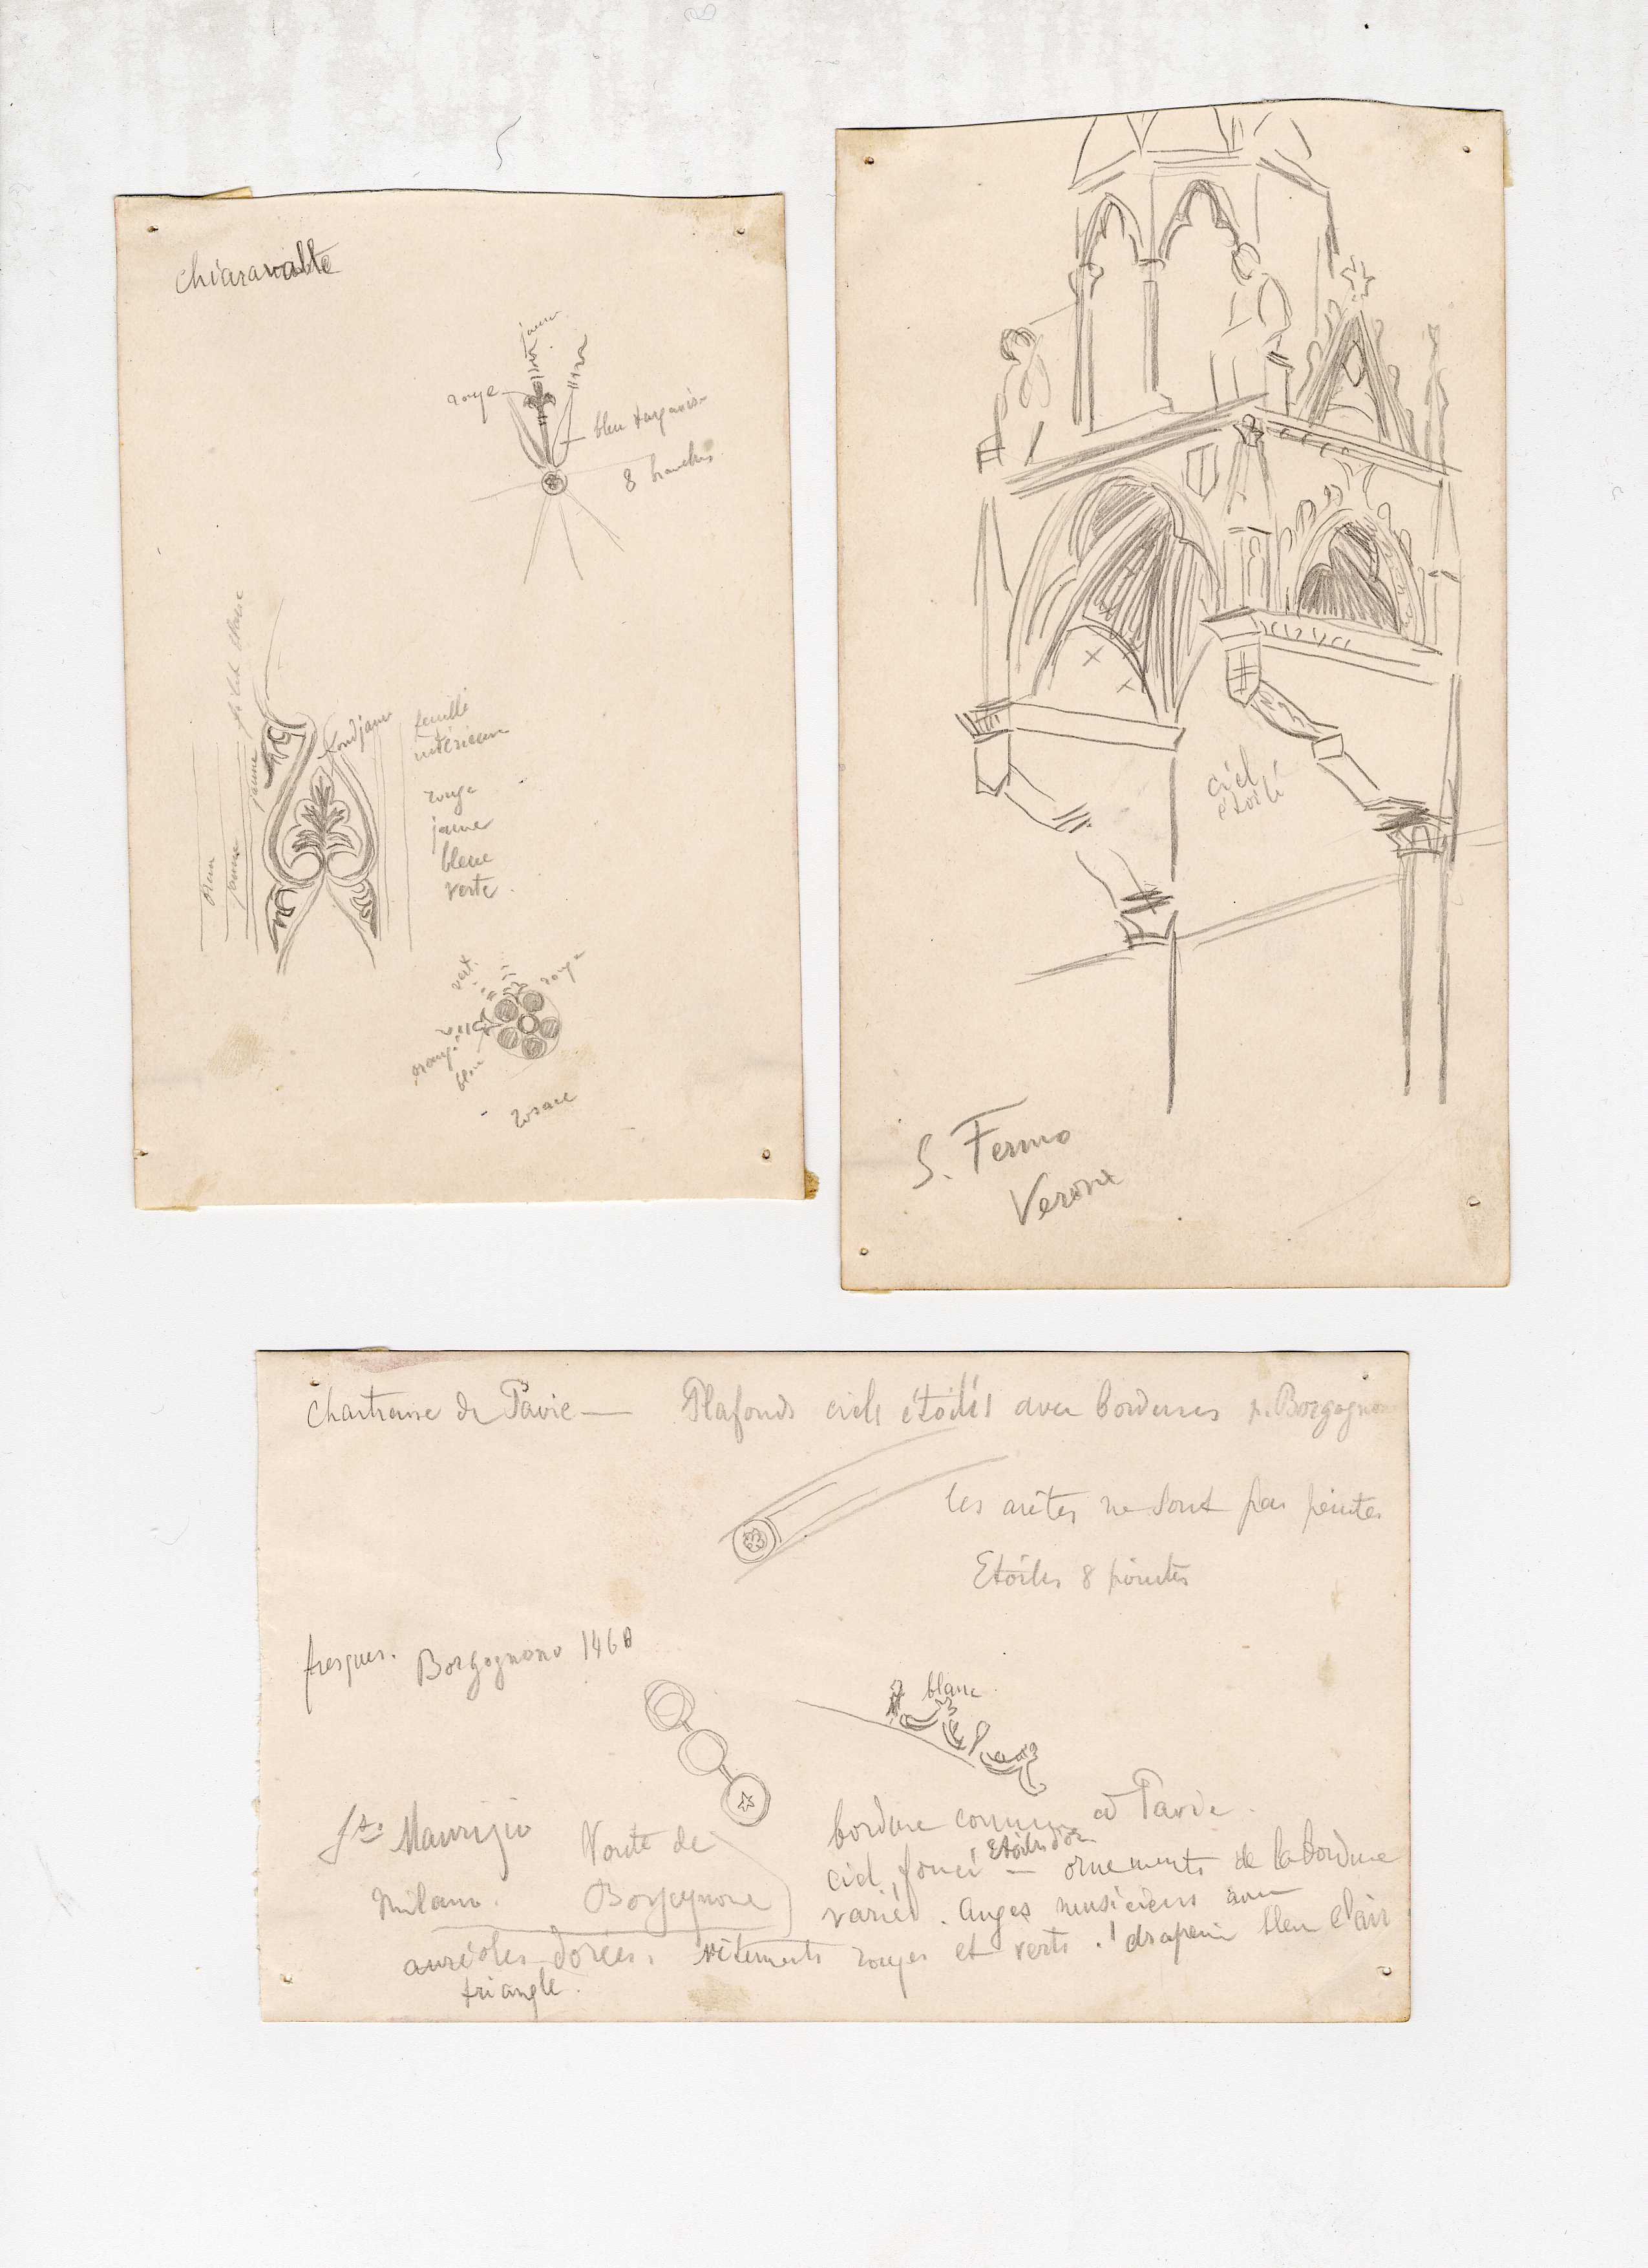 chiaravalle
jaune
rouge
bleu
8 branches
filet
fond jaune
feuille
intérieure
rouge
jaune
bleue
verte
jaune
jaune
vert
rouge
rouge
bleu
rosace
ciel
étoilé
S. Fermo
Verona
Chartreuse de Pavie — Plafonds ciels étoilés avec bordures p. Borgognone
les arêtes ne sont pas peintes
Etoiles 8 pointes
fresques. Borgognono 1460
blanc
St. Maurizio
Milano.
Voute de
Borgognone
bordure comme à Pavie.
Etoiles d'or
ciel foncé — ornements de la bordure
variés. Anges musiciens avec
auréoles dorées. vêtements rouges et verts. drapeau bleu clair
triangle.